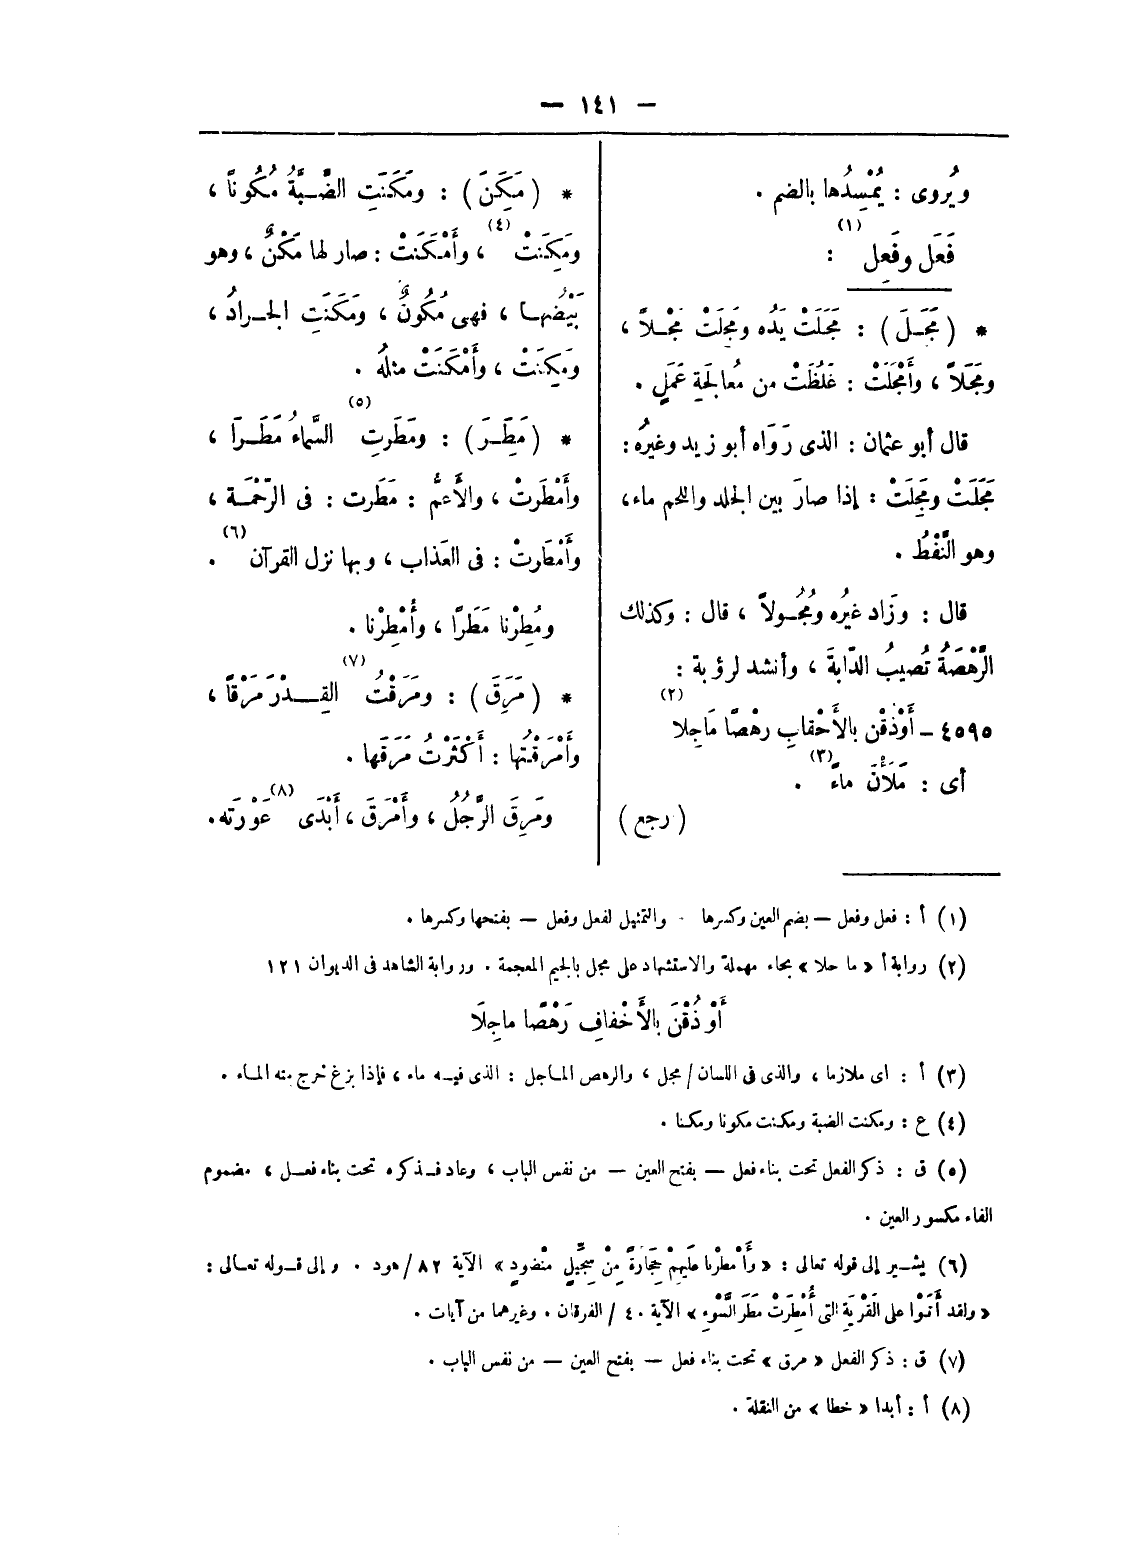 — ١٤١ —
ويُروى : يُمْسِدُها بالضم .
فَعَل وفَعِل (١) :
* ( مَجَلَ ) : مَجَلَتْ يَدُه ومَجِلَتْ مَجْلاً ،
ومَجَلاً ، وأَمْجَلَتْ : غَلُظَتْ من مُعالَجَةِ عَمَلٍ .
قال أبو عثمان : الذى رَوَاه أبو زيد وغيرُه :
مَجَلَتْ ومَجِلَتْ : إذا صارَ بين الجلد واللحم ماء،
وهو النَّفْطُ .
قال : وزَاد غيرُه ومُجُولاً ، قال : وكذلك
الرَّهْصَةُ تُصيبُ الدّابةَ ، وأنشد لرؤبة :
٤٥٩٥ – أَوْذُقْن بالأَحْقابِ رهْصًا مَاجِلا (٢)
أى : مَلَأْنَ ماءً (٣) .
( رجع )
* ( مَكِنَ ) : ومَكَنَتِ الضَّبَّةُ مُكُوناً ،
ومَكِنَتْ (٤) ، وأَمْكَنَتْ : صار لها مَكْنٌ ، وهو
بَيْضُها ، فهى مُكُونٌ ، ومَكَنَتِ الجرادُ ،
ومَكِنَتْ ، وأَمْكَنَتْ مثلُه .
* ( مَطِرَ ) : ومَطَرتِ (٥) السَّماءُ مَطَرًا ،
وأَمْطَرتْ ، والأَعمُّ : مَطَرت : فى الرَّحْمَة ،
وأَمْطَرتْ : فى العَذاب ، وبها نزل القرآن (٦) .
ومُطِرْنا مَطَرًا ، وأُمْطِرْنا .
* ( مَرِقَ ) : ومَرَقْتُ (٧) القِدْرَ مَرْقًا ،
وأَمْرَقْتُها : أَكْثَرْتُ مَرَقَها .
ومَرِقَ الرَّجُلُ ، وأَمْرَقَ ، أَبْدَى (٨) عَوْرَتَه.
(١) أ : فعل وفعل – بضم العين وكسرها . والتمثيل لفعل وفعل – بفتحها وكسرها .
(٢) رواية أ « ما حلا » بحاء مهملة والاستشهاد على مجل بالجيم المعجمة . ورواية الشاهد فى الديوان ١٢١
أَوْ ذُقْنَ بالأَخْفافِ رَهْصًا ماجِلَا
(٣) أ : اى ملازما ، والذى فى اللسان / مجل ، والرهص الماجل : الذى فيه ماء ، فإذا بزغ خرج منه الماء .
(٤) ع : ومكنت الضبة ومكنت مكونا ومكنا .
(٥) ق : ذكر الفعل تحت بناء فعل – بفتح العين – من نفس الباب ، وعاد فذكره تحت بناء فعل ، مضموم
الفاء مكسور العين .
(٦) يشير إلى قوله تعالى : « وأَمْطرنا عليهمْ حِجَارَةً مِنْ سِجِّيلٍ منْضودٍ » الآية ٨٢/هود . وإلى قوله تعالى :
« ولقد أَتَوْا على القَرْيَةِ التى أُمْطِرَتْ مَطَرَ السَّوْءِ » الآية ٤٠ / الفرقان . وغيرهما من آيات .
(٧) ق : ذكر الفعل « مرق » تحت بناء فعل – بفتح العين – من نفس الباب .
(٨) أ : أبدا « خطا » من النقلة .